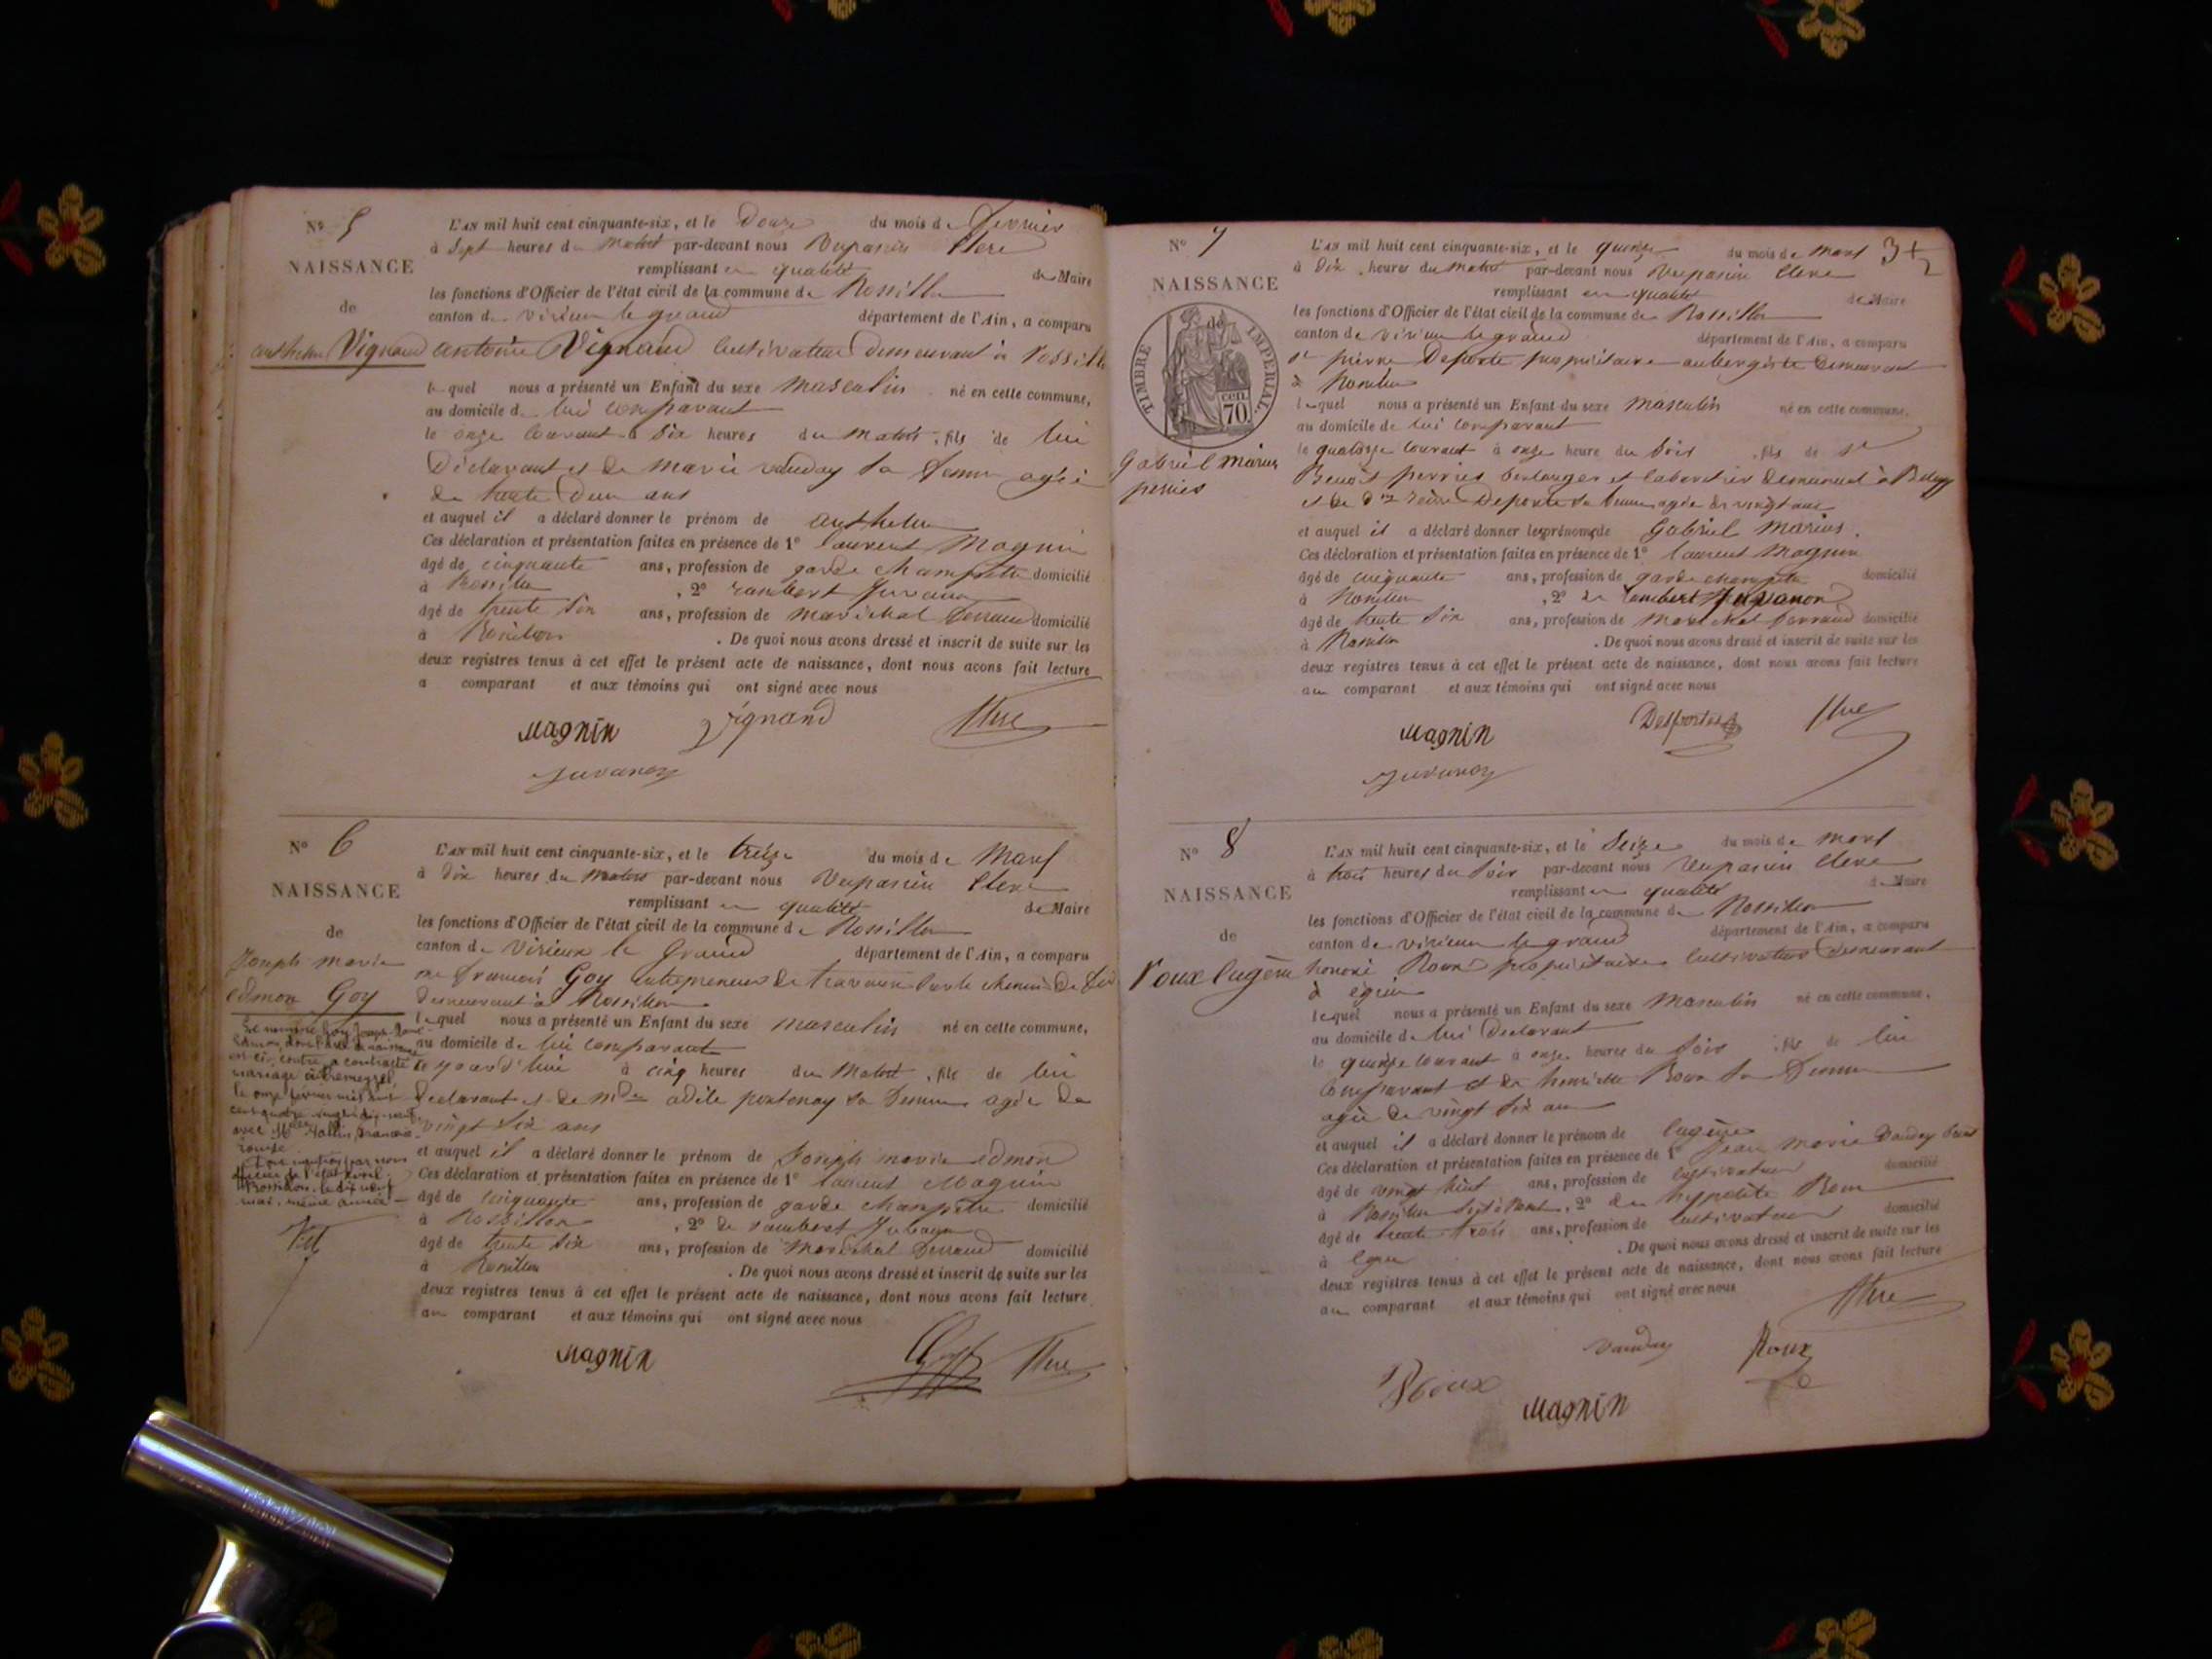 N° 5
NAISSANCE
de
anthelme Vignand
L'AN mil huit cent cinquante-six, et le Douze du mois de fevrier
à Sept heures du matin par-devant nous Vespasien Clerc
remplissant en qualité de Maire
les fonctions d'Officier de l'état civil de la commune de Rossillon
canton de virieu le grand département de l'Ain, a comparu
antoine Vignand Cultivateur demeurant à rossillon
lequel nous a présenté un Enfant du sexe masculin né en cette commune,
au domicile de lui comparant
le onze courant à Six heures du matin, fils de lui
Déclarant et de marie vauday sa femme agée
de trente Deux ans
et auquel il a déclaré donner le prénom de anthelme
Ces déclaration et présentation faites en présence de 1° laurent Magnin
âgé de cinquante ans, profession de garde champêtre domicilié
à Rossillon, 2° rambert Juvanon
âgé de trente Six ans, profession de maréchal ferrand domicilié
à Rossillon. De quoi nous avons dressé et inscrit de suite sur les
deux registres tenus à cet effet le présent acte de naissance, dont nous avons fait lecture
a comparant et aux témoins qui ont signé avec nous
Magnin Vignand Clerc
Juvanon
N° 6
NAISSANCE
de
Joseph marie
edmon Goy
Le nommé Goy Joseph Marie
Edmon, dont l'acte de naissance
est ci-contre, a contracté
mariage à
le onze février mil huit
cent quatre vingt dix-neuf
avec Mlle
Dont mention par nous
officier de l'état civil.
Rossillon, le dix neuf
mai, même année
L'AN mil huit cent cinquante-six, et le treize du mois de Mars
à dix heures du matin par-devant nous Vespasien Clerc
remplissant en qualité de Maire
les fonctions d'Officier de l'état civil de la commune de Rossillon
canton de Virieux le Grand département de l'Ain, a comparu
mr francois Goy entrepreneur de travaux sur le chemin de fer
demeurant à Rossillon
lequel nous a présenté un Enfant du sexe masculin né en cette commune,
au domicile de lui comparant
ce jourd'hui à cinq heures du matin, fils de lui
declarant et de mde adèle pontenay sa femme agée de
vingt Six ans
et auquel il a déclaré donner le prénom de Joseph marie edmon
Ces déclaration et présentation faites en présence de 1° laurent Magnin
âgé de cinquante ans, profession de garde champêtre domicilié
à Rossillon, 2° de rambert Juvanon
âgé de trente Six ans, profession de Maréchal ferrand domicilié
à Rossillon. De quoi nous avons dressé et inscrit de suite sur les
deux registres tenus à cet effet le présent acte de naissance, dont nous avons fait lecture
au comparant et aux témoins qui ont signé avec nous
Magnin Goy Clerc
3
N° 7
NAISSANCE
de
TIMBRE IMPERIAL.
70 cen.
Gabriel marius
perrier
L'AN mil huit cent cinquante-six, et le quinze du mois de mars
à dix heures du matin par-devant nous Vespasien Clerc
remplissant en qualité de Maire
les fonctions d'Officier de l'état civil de la commune de Rossillon
canton de virieu le grand département de l'Ain, a comparu
sr pierre Deporte propriétaire aubergiste demeurant
à Rossillon
lequel nous a présenté un Enfant du sexe masculin né en cette commune,
au domicile de lui comparant
le quatorze courant à onze heure du soir, fils de sr
Benoit perrier boulanger et cabaretier demeurant à Belley
et de Deporte sa femme agée de vingt ans
et auquel il a déclaré donner les prénoms de Gabriel Marius.
Ces déclaration et présentation faites en présence de 1° laurent Magnin
âgé de cinquante ans, profession de garde champêtre domicilié
à Rossillon, 2° de rambert Juvanon
âgé de trente Six ans, profession de maréchal ferrand domicilié
à Rossillon. De quoi nous avons dressé et inscrit de suite sur les
deux registres tenus à cet effet le présent acte de naissance, dont nous avons fait lecture
au comparant et aux témoins qui ont signé avec nous
Magnin Desportes Clerc
Juvanon
N° 8
NAISSANCE
de
Roux Eugène
L'AN mil huit cent cinquante-six, et le Seize du mois de mars
à trois heures du soir par-devant nous Vespasien Clerc
remplissant en qualité de Maire
les fonctions d'Officier de l'état civil de la commune de Rossillon
canton de virieu le grand département de l'Ain, a comparu
honoré Roux propriétaire Cultivateur demeurant
à égieu
lequel nous a présenté un Enfant du sexe Masculin né en cette commune,
au domicile de lui Declarant
le quinze courant à onze heures du soir, fils de lui
Comparant et de henriette Roux sa femme
agée de vingt Six ans
et auquel il a déclaré donner le prénom de Eugène
Ces déclaration et présentation faites en présence de 1° Jean Marie Vauday
âgé de vingt huit ans, profession de cultivateur domicilié
à Rossillon, 2° de hyppolite Roux
âgé de trente trois ans, profession de cultivateur domicilié
à Egieu. De quoi nous avons dressé et inscrit de suite sur les
deux registres tenus à cet effet le présent acte de naissance, dont nous avons fait lecture
au comparant et aux témoins qui ont signé avec nous
Clerc
Vauday Roux
Roux
Magnin